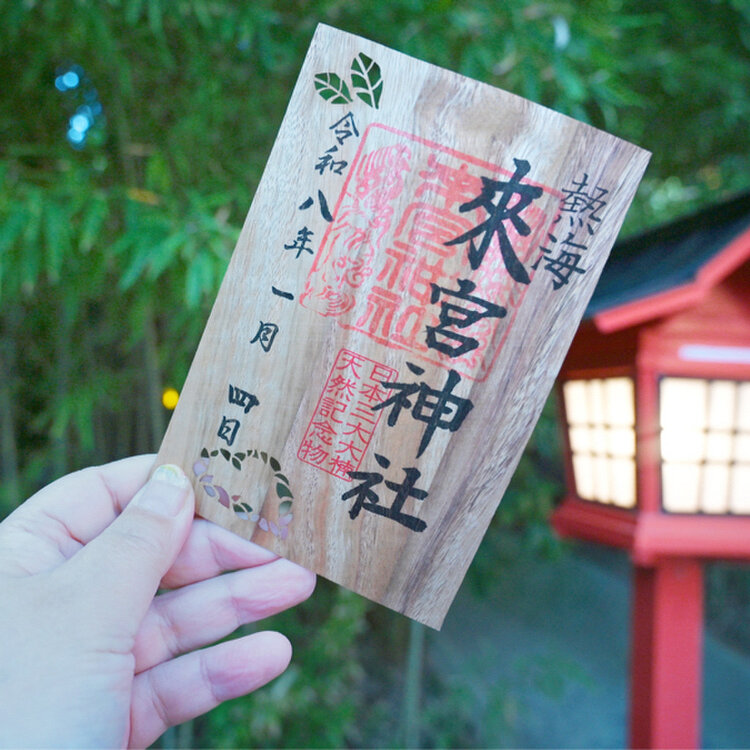 熱海
來宮神社
日本三大大楠
天然記念物
令和八年
一月
四日